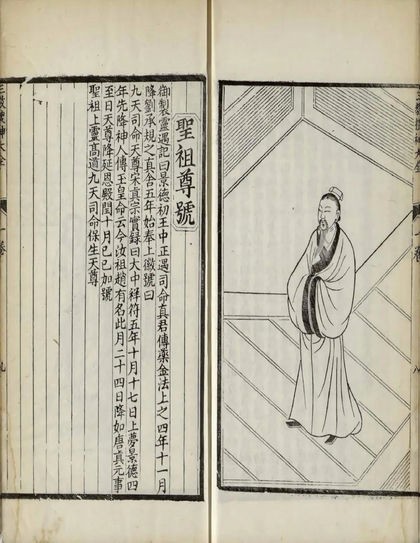 聖祖尊號
御製靈遇記曰景德初王中正遇司命真君傳藥金法上之四年十一月
降劉承規之真舍五年始奉上徽號曰
九天司命天尊宋真宗實録曰大中祥符五年十月十七日上夢景德四
年先降神人傳玉皇命云今汝祖趙有名此月二十四日降如唐真元事
至日天尊降延恩殿閏十月己巳加號
聖祖上靈高道九天司命保生天尊
一卷
九